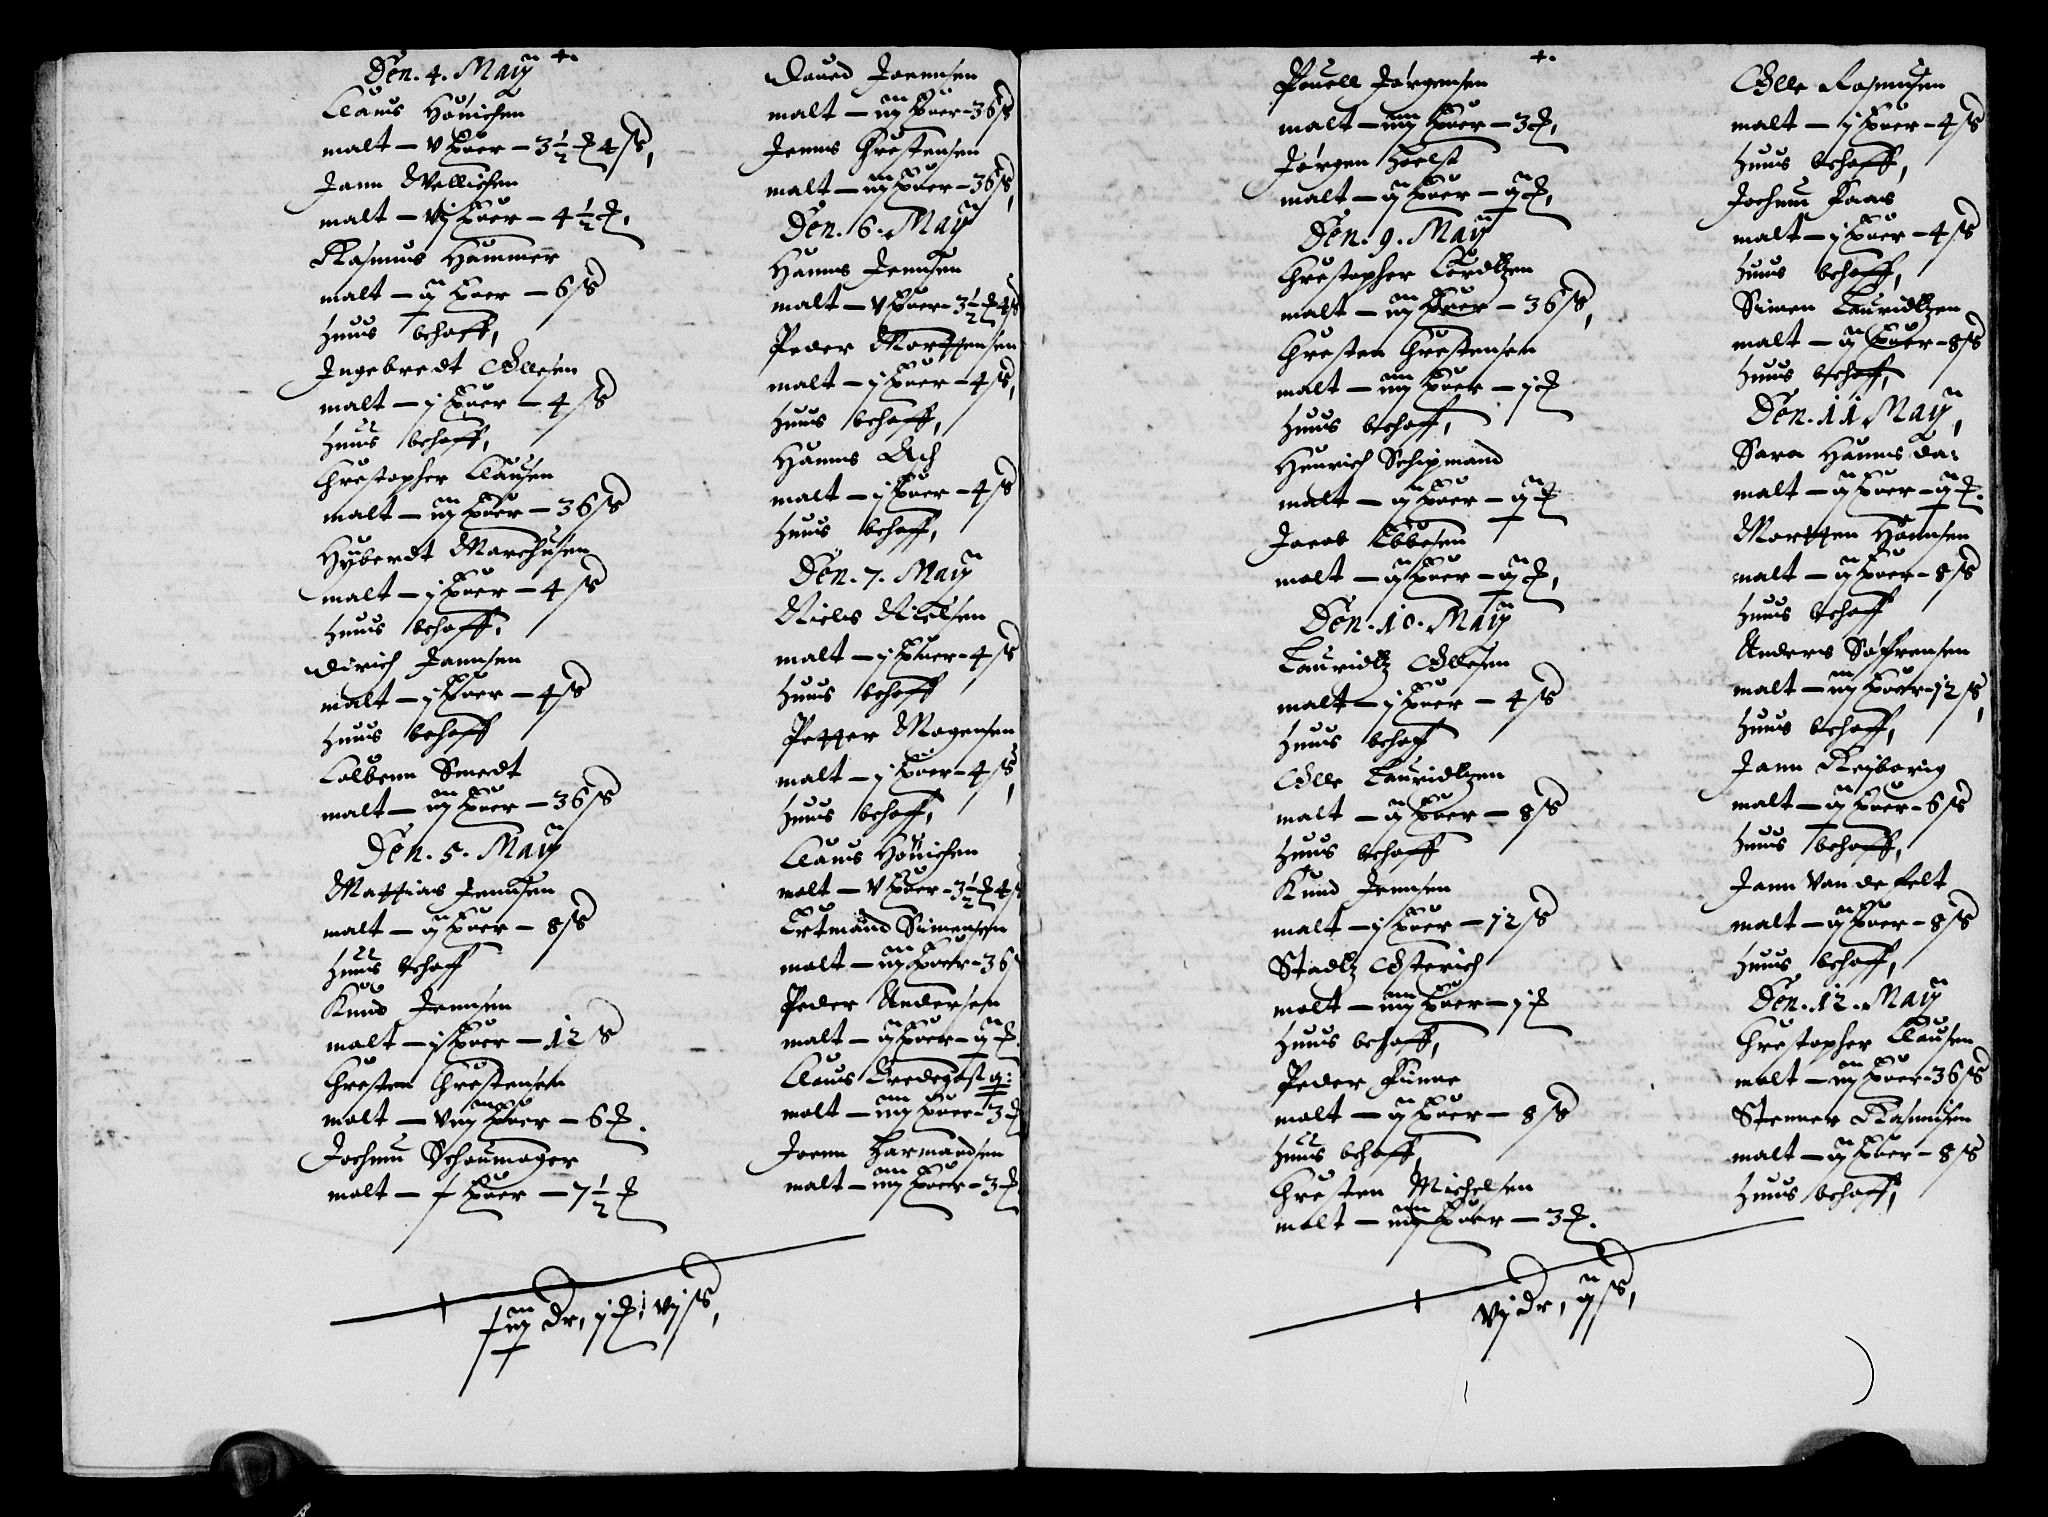 Den. 4. Maij
Claus Hönichen
malt - v Tøer - 3½ ℳ 4 ß,
Jann Wellichsen
malt - vj Tøer - 4½ ℳ,
Rasmus Hammer
malt - ij Tøer - 6 ß
Huus behoff,
Ingebredt Ollesen
malt - j Tøer - 4 ß
Huus behoff,
Chrestopher Clausen
malt - iij Tøer - 36 ß
Hyberdt Marchusen
malt - j Tøer - 4 ß
Huus behoff,
Dirich Jannsen
malt - j Tøer - 4 ß
Huus behoff
Colbenn Smedt
malt - iij Tøer - 36 ß
Den. 5. Maij
Mattias Jennsen
malt - ij Tøer - 8 ß
Huus behoff
Knud Jennsen
malt - j Tøer - 12 ß
Chresten Chrestensen
malt - viij Tøer - 6 ℳ.
Jochum Schoumager
malt - x Tøer - 7½ ℳ
Dauvd Joennsen
malt - iij Tøer - 36 ß
Jenns Chrestensen
malt - iij Tøer - 36 ß,
Den. 6. Maij
Hanns Jennsen
malt - v Tøer - 3½ ℳ 4 ß
Peder Morttensen
malt - j Tøer - 4 ß,
Huus behoff,
Hanns Ach
malt - j Tøer - 4 ß
Huus behoff,
Den. 7. Maij
Niels Nielsen
malt - j Tøer - 4 ß
Huus behoff
Petter Mogensen
malt - j Tøer - 4 ß,
Huus behoff,
Claus Hönichen
malt - v Tøer - 3½ ℳ 4
Ertmand Simensen
malt - iij Tøer - 36
Peder Andersen
malt - ij Tøer - ij ℳ.
Claus Bredegost
malt - iiij Tøer - 3 ℳ
Joenn Harmandsen
malt - iiij Tøer - 3 ℳ
xiij dr, j ℳ, vj ß,
Pouell Jørgensen
malt - iiij Tøer - 3 ℳ,
Jørgen Hoelst
malt - ij Tøer - ij ℳ,
Den. 9. Maij
Chrestopher Cordtzen
malt - iij Tøer - 36 ß,
Chresten Chrestensen
malt - iiij Tøer - j ℳ
Huus behoff,
Henrich Schipmand
malt - ij Tøer - ij ℳ
Jacob Ebbesen
malt - ij Tøer - ij ℳ,
Den. 10. Maij
Lauridtz Ollesen
malt - j Tøer - 4 ß
Huus behoff
Olle Lauridtzen
malt - ij Tøer - 8 ß
Huus behoff
Knud Jennsen
malt - j Tøer - 12 ß
Stadtz Osterich
malt - iiij Tøer - j ℳ
Huus behoff,
Peder Finne
malt - ij Tøer - 8 ß
Huus behoff,
Chresten Michelsen
malt - iiij Tøer - 3 ℳ.
vj dr, ij ß,
Olle Rasmusen
malt - j Tøer - 4 ß
Huus behoff,
Jochum Faas
malt - j Tøer - 4 ß
Huus behoff,
Simen Lauridtzen
malt - ij Tøer - 8 ß
Huus behoff,
Den. 11 Maij,
Sara Hanns Da:
malt - ij Tøer - ij ℳ.
Mortten Hannsen
malt - ij Tøer - 8 ß
Huus behoff
Anders Søffrensen
malt - iij Tøer - 12 ß,
Huus behoff,
Jann Reiborig
malt - ij Tøer - 6 ß
Huus behoff,
Jann van de felt
malt - ij Tøer - 8 ß
Huus behoff,
Den. 12. Maij
Chrestopher Clausen
malt - iij Tøer - 36 ß
Stenner Rasmusen
malt - ij Tøer - 8 ß
Huus behoff,